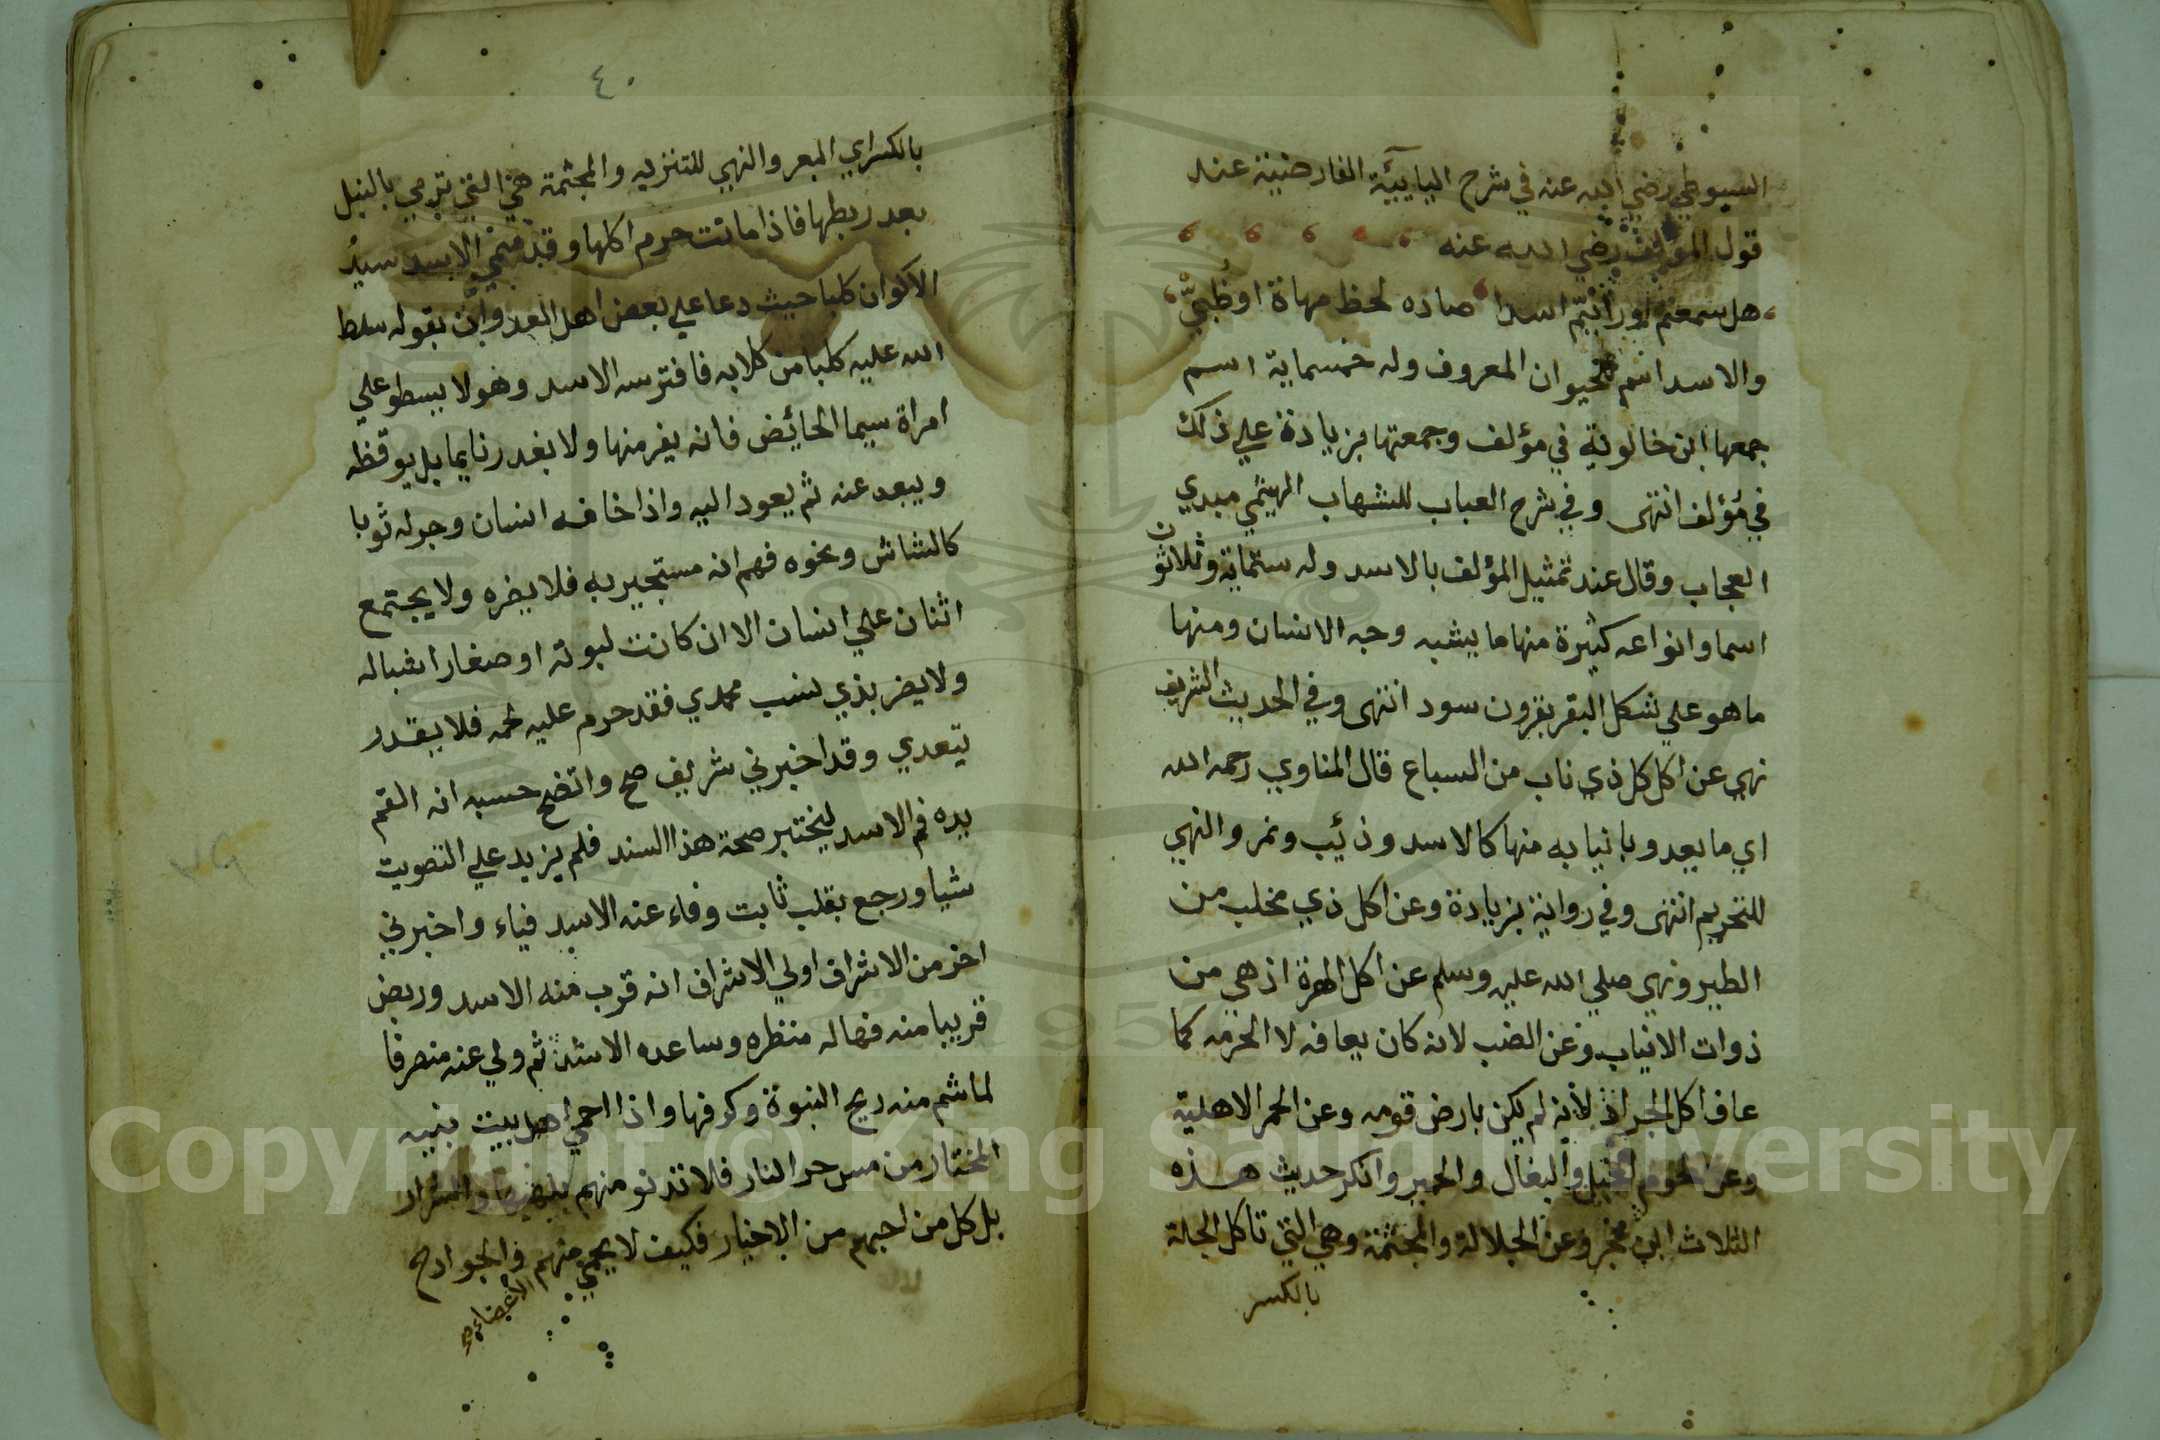 السيوطي رضي الله عنه في شرح اليائية الفارضية عند
قول المؤلف رضي الله عنه
هل سمعتم او رأيتم اسدا صاده لحظ مهاة او ظبيّ
والاسد اسم للحيوان المعروف وله خمسماية اسم
جمعها ابن خالوية في مؤلف وجمعتها بزيادة علي ذلك
في مؤلف انتهى وفي شرح العباب للشهاب الهيتمي مبدي
العجاب وقال عند تمثيل المؤلف بالاسد وله ستماية وثلاثون
اسما وانواعه كثيرة منها ما يشبه وجه الانسان ومنها
ما هو علي شكل البقر بقرون سود انتهى وفي الحديث الشريف
نهي عن اكل كل ذي ناب من السباع قال المناوي رحمه الله
اي ما يعدو بانيابه منها كالاسد وذئيب ونمر والنهي
للتحريم انتهى وفي رواية بزيادة وعن اكل ذي مخلب من
الطير ونهي صلي الله عليه وسلم عن اكل الهرة اذ هي من
ذوات الانياب وعن الضب لانه كان يعافه لا لحرمه كما
عاف اكل الجراد لأنه لم يكن بارض قومه وعن الحمر الاهلية
وعن لحوم الخيل والبغال والحمير وانكر حديث هذه
الثلاث ابن حجر وعن الجلالة والمجثمة وهي التي تاكل الجلة
بالكسر
٤٠
بالكسر اي البعر والنهي للتنزيه والمجثمة هي التي ترمي بالنبل
بعد ربطها فاذا ماتت حرم اكلها وقد سمي الاسد سيد
الاكوان كلبا حيث دعا علي بعض اهل العدوان بقوله سلط
الله عليه كلبا من كلابه فافترسه الاسد وهو لا يسطو علي
امراة سيما الحائيض فانه يفر منها ولا يغدر نايما بل يوقظه
ويبعد عنه ثم يعود اليه واذا خافه انسان وجر له ثوبا
كالشاش ونحوه فهم انه مستجير به فلا يضره ولا يجتمع
اثنان علي انسان الا ان كانت لبوته او صغار اشباله
ولا يضر بذي نسب محمدي فقد حرم عليه لحمه فلا يقدر
يتعدي وقد اخبرني شريف صح واتضح حسبه انه القم
يده فم الاسد ليختبر صحة هذا السند فلم يزيد علي التصويت
شيا ورجع بقلب ثابت وفاء عنه الاسد فياء واخبرني
اخر من الاشراف اولي الاشراف انه قرب منه الاسد وربض
قريبا منه فهاله منظره وساعده الاسد ثم ولي عنه منصرفا
لما شم منه ريح النبوة وكر فها واذا احمي اهل بيت نبيه
المختار من مس حر النار فلا تدنو منهم والشرار
بل كل من احبهم من الاخيار فكيف لا يحمي منهم والجوارح
الأعضاء صح
Copyright © King Saud University
1957